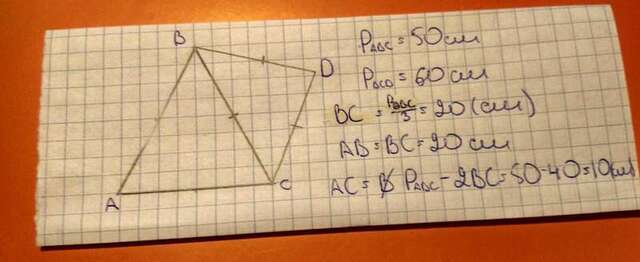 B
D
A
C
P_ABC = 50 см
P_BCD = 60 см
BC = P_DBC/3 = 20 (см)
AB = BC = 20 см
AC = P_ABC - 2BC = 50 - 40 = 10 (см)